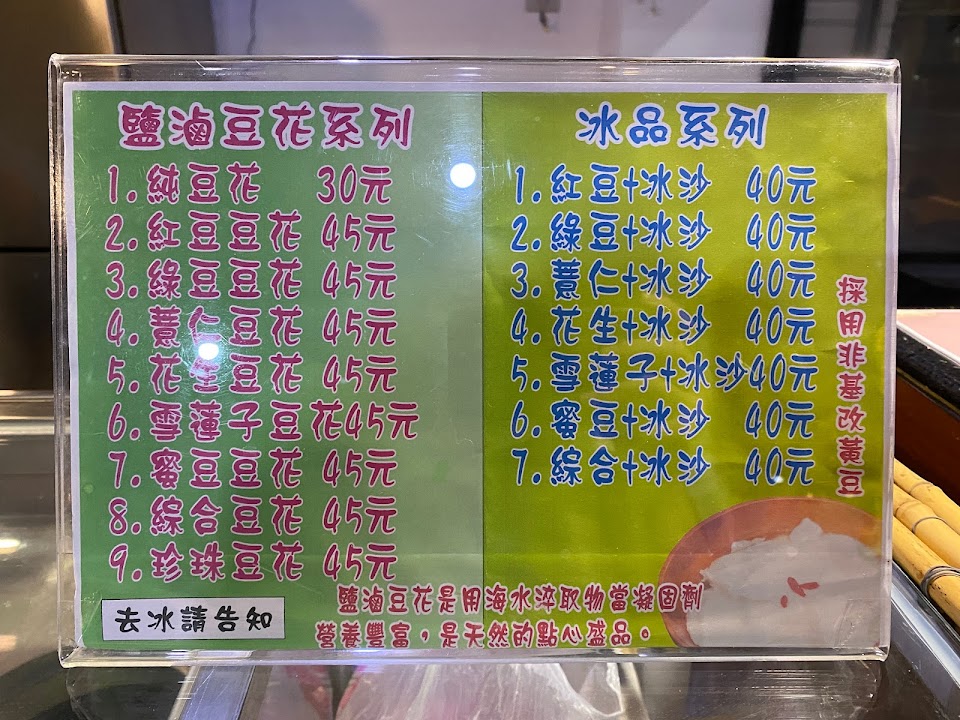 鹽滷豆花系列
1.純豆花 30元
2.紅豆豆花 45元
3.綠豆豆花 45元
4.薏仁豆花 45元
5.花生豆花 45元
6.雪蓮子豆花45元
7.蜜豆豆花 45元
8.綜合豆花 45元
9.珍珠豆花 45元
去冰請告知
冰品系列
1.紅豆+冰沙 40元
2.綠豆+冰沙 40元
3.薏仁+冰沙 40元
4.花生+冰沙 40元
5.雪蓮子+冰沙40元
6.蜜豆+冰沙 40元
7.綜合+冰沙 40元
採用非基改黃豆
鹽滷豆花是用海水淬取物當凝固劑
營養豐富，是天然的點心盛品。